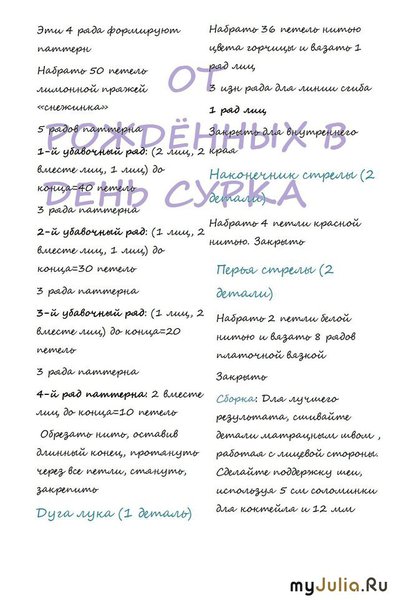 Эти 4 ряда формируют
паттерн
Набрать 50 петель
лимонной пряжей
«снежинка»
5 рядов паттерна
1-й убавочный ряд: (2 лиц, 2
вместе лиц, 1 лиц) до
конца=40 петель
3 ряда паттерна
2-й убавочный ряд: (1 лиц, 2
вместе лиц, 1 лиц) до
конца=30 петель
3 ряда паттерна
3-й убавочный ряд: (1 лиц, 2
вместе лиц) до конца=20
петель
3 ряда паттерна
4-й ряд паттерна: 2 вместе
лиц до конца=10 петель
Обрезать нить, оставив
длинный конец, протянуть
через все петли, стянуть,
закрепить
Дуга лука (1 деталь)
Набрать 36 петель нитью
цвета горчицы и вязать 1
ряд лиц
3 изн ряда для линии сгиба
1 ряд лиц
Закрыть для внутреннего
края
Наконечник стрелы (2
детали)
Набрать 4 петли красной
нитью. Закрыть
Перья стрелы (2
детали)
Набрать 2 петли белой
нитью и вязать 8 рядов
платочной вязкой
Закрыть
Сборка: Для лучшего
результата, сшивайте
детали матрацным швом ,
работая с лицевой стороны.
Сделайте поддержку шеи,
используя 5 см соломинки
для коктейля и 12 мм
ОТ
РОЖДЁННЫХ В
ДЕНЬ СУРКА
myJulia.Ru